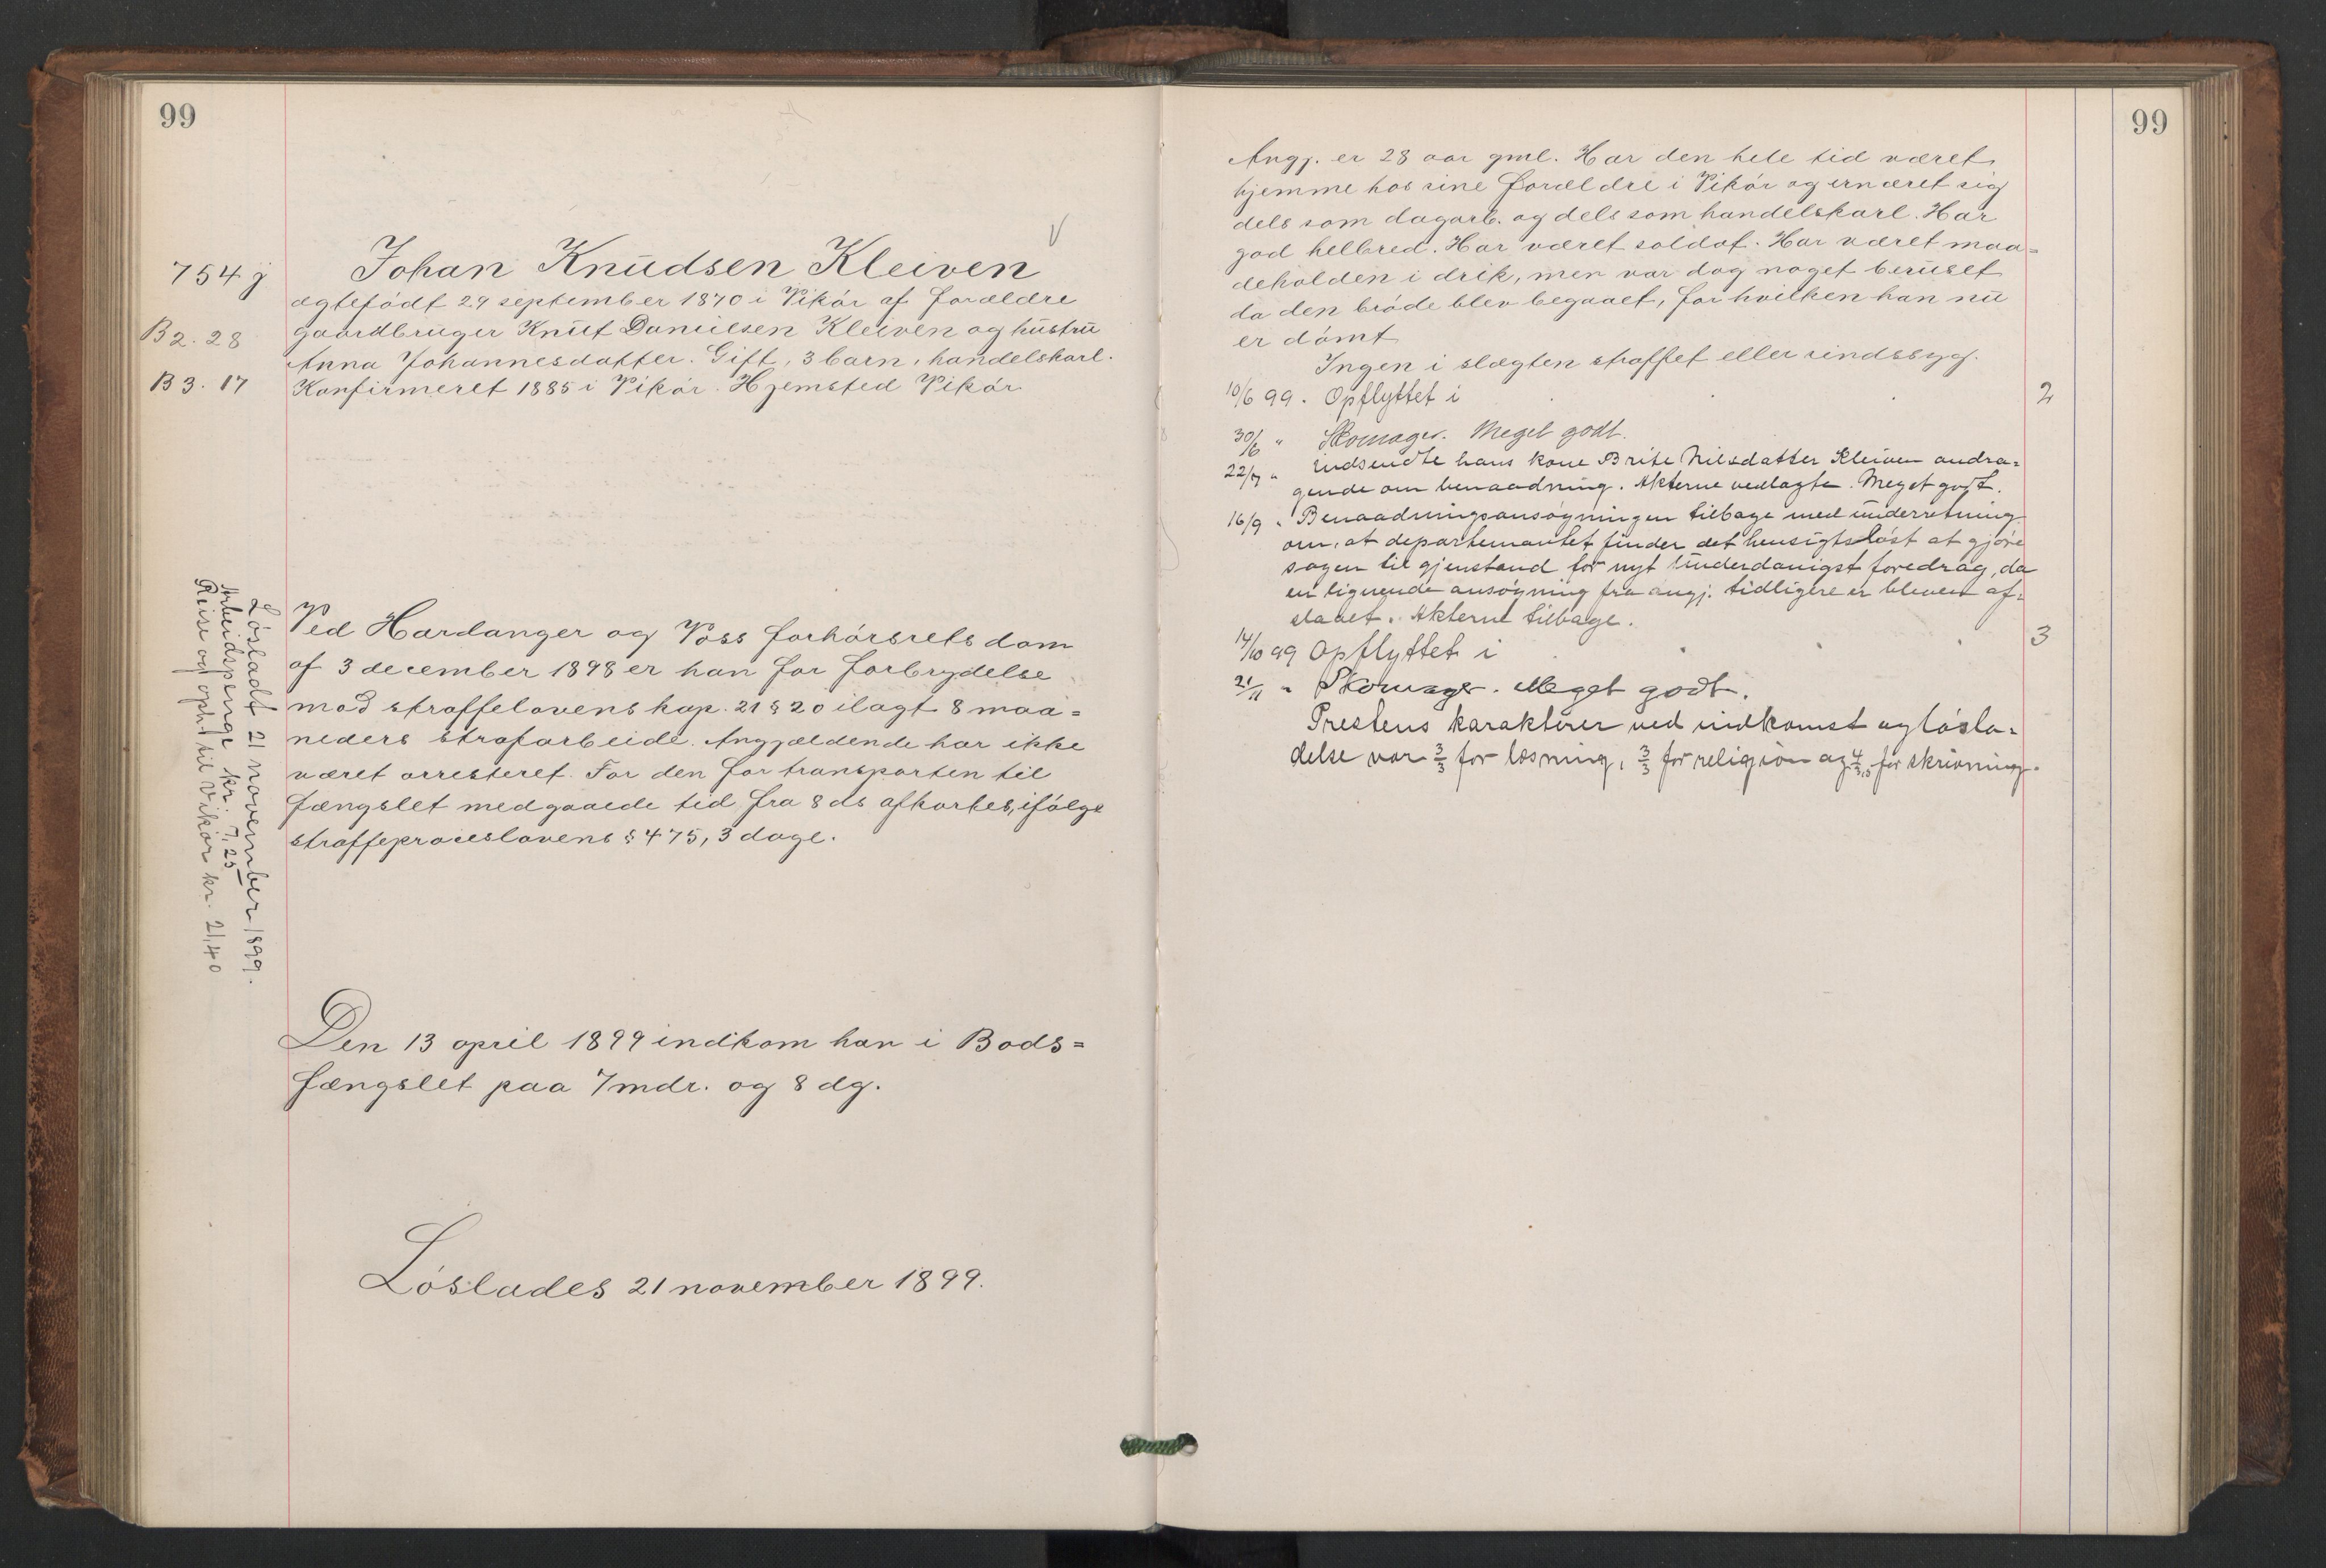 99
V
754 j
Johan Knudsen Kleiven
ægtefødt 29 september 1870 i Vikør af forældre
B 2. 28
gaardbruger Knut Danielsen Kleiven og hustru
Anna Johannesdatter. Gift, 3 barn, handelskarl.
B 3. 17
Konfirmeret 1885 i Vikør. Hjemsted Vikør
Ved Hardanger og Voss forhørsrets dom
af 3 december 1898 er han for forbrydelse
mod straffelovens kap. 21 § 20 ilagt 8 maa=
neders strafarbeide. Anggjældende har ikke
været arresteret. For den for transporten til
fængslet medgaaede tid fra 8 ds afkortes, ifølge
straffeproceslovens § 475, 3 dage.
Løsladt 21 november 1899.
Arbeidspenge kr. 7,25
Reise og oph. til Vikør kr. 21,40
Den 13 april 1899 indkom han i Bods=
fængslet paa 7 mdr. og 8 dg.
Løslades 21 november 1899.
99
Angj. er 28 aar gml. Har den hele tid været
hjemme hos sine forældre i Vikør og ernæret sig
dels som dagarb. og dels som handelskarl. Har
god helbred. Har været soldat. Har været maa=
deholden i drik, men var dog noget beruset
da den brøde blev begaaet, for hvilken han nu
er dømt
Ingen i slægten straffet eller sindssyg.
10/6 99. Opflyttet i 2
30/6 " Skomager. Meget godt.
22/7 " indsendte hans kone Brite Nilsdatter Kleiven andra=
gende om benaadning. Akterne vedlagte. Meget godt.
16/9 " Benaadningsansøgningen tilbage med underretning
om, at departementet finder det hensigtsløst at gjøre
sagen til gjenstand for nyt underdanigst foredrag, da
en lignende ansøgning fra angj. tidligere er bleven af=
slaaet. Akterne tilbage.
14/10 99 Opflyttet i 3
21/11 " Skomager. Meget godt.
Prestens karakterer ved indkomst og løsla=
delse var 3/3 for læsning, 3/3 for religion og 4/3,5 for skrivning.